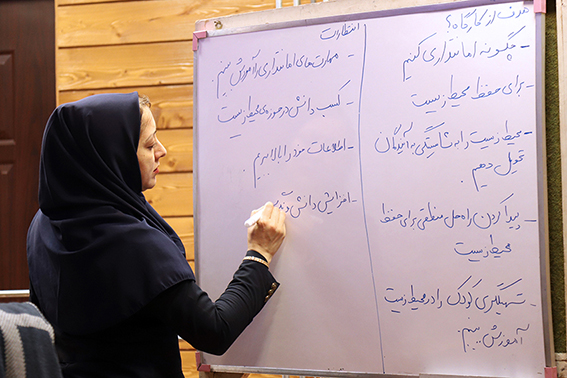 هدف از کارگاه؟
- چگونه امانتداری کنیم
- برای حفظ محیط زیست
- محیط زیست را به شایستگی به آیندگان
تحویل دهیم.
- پیدا کردن راه حل منطقی برای حفظ
محیط زیست
- تسهیلگری کودک را در محیط زیست
آموزش ببینیم.
انتظارات
- مهارت‌های امانتداری را آموزش ببینیم.
- کسب دانش در حوزه‌ی محیط زیست
- اطلاعات خود را بالا ببریم.
- افزایش دانش و